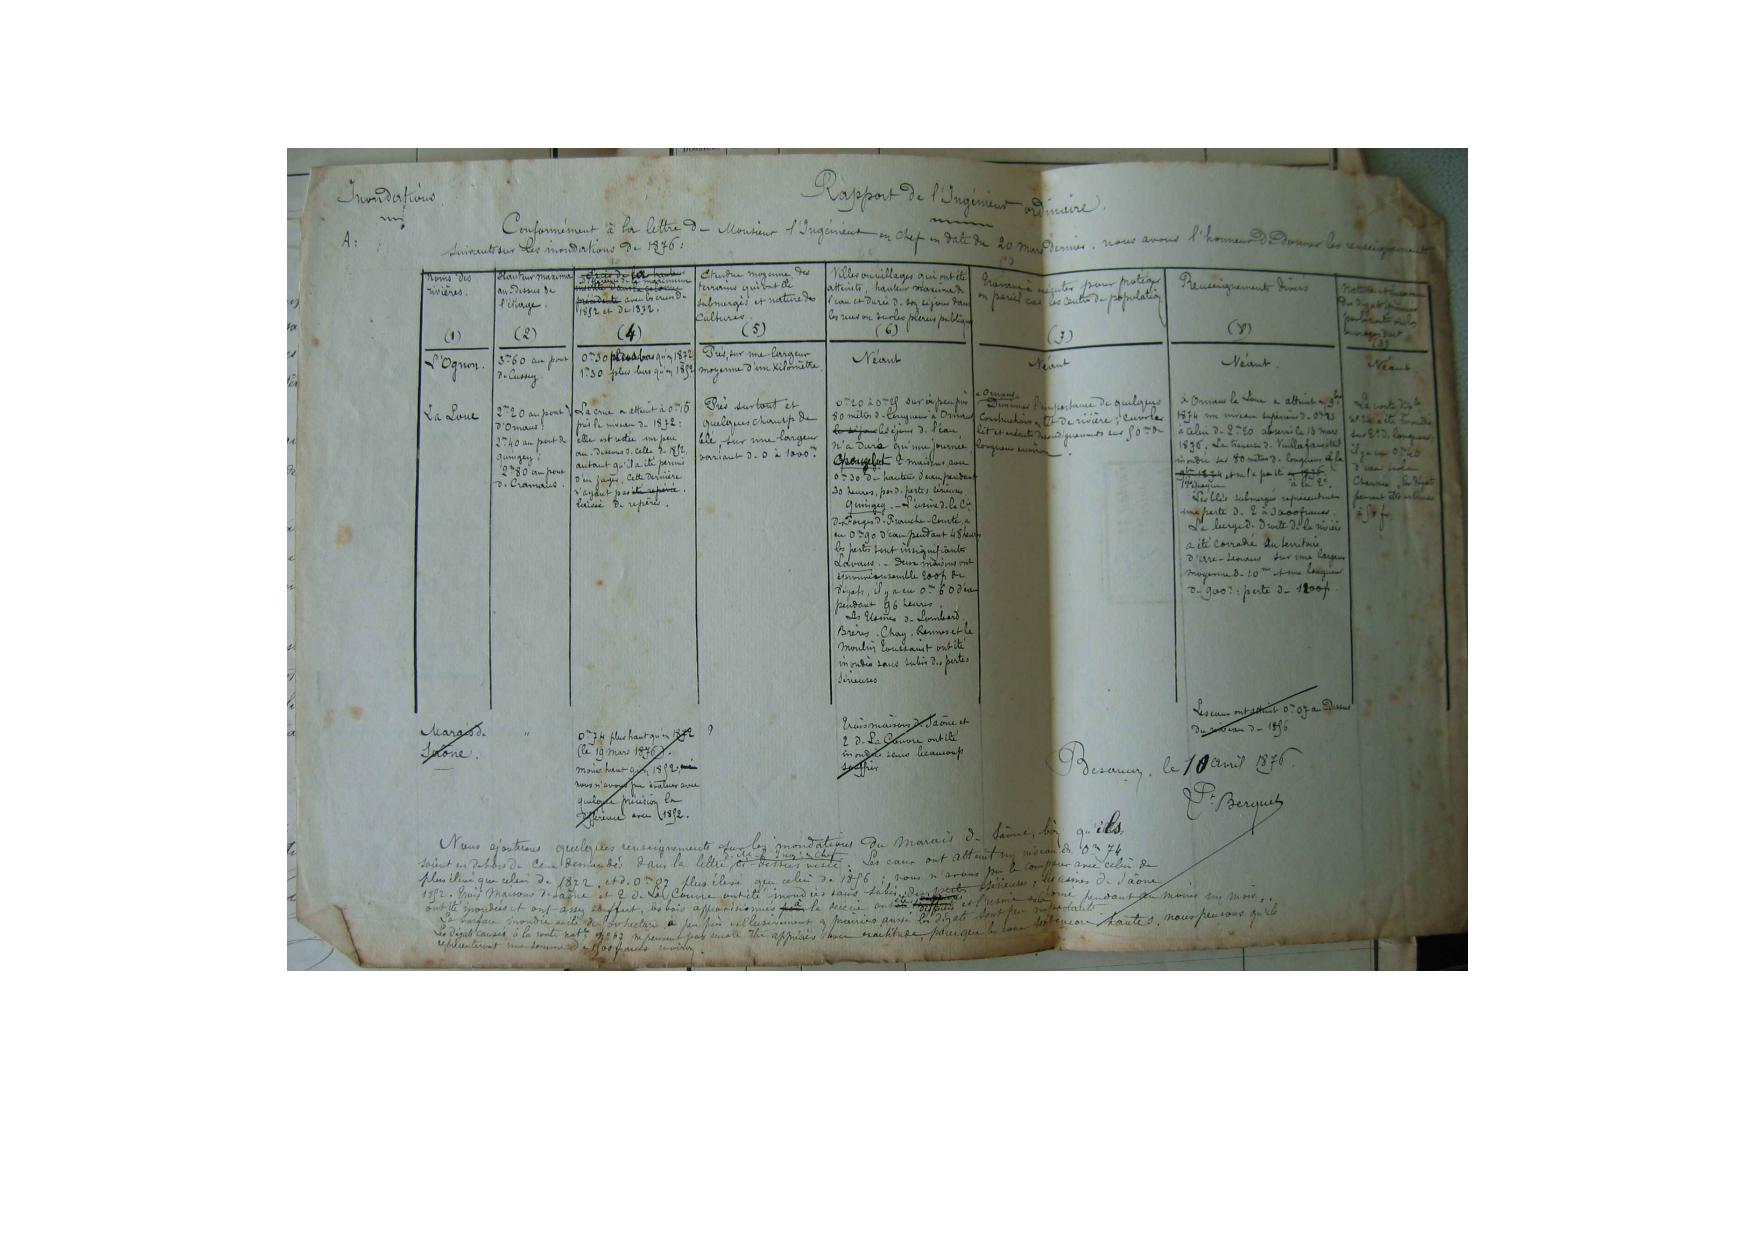 Inondations.
Rapport de l'Ingénieur ordinaire.
A:
Conformément à la lettre de Monsieur l'Ingénieur en Chef en date du 20 mars dernier, nous avons l'honneur de donner les renseignements
suivants sur les inondations de 1876:
Noms des
rivières.
(1)
Hauteur maxima
au-dessus de
l'étiage.
(2)
précédente avec les crues de
1852 et de 1872.
(4)
Etendue moyenne des
terrains qui ont été
submergés et nature des
Cultures.
(5)
Villes ou villages qui ont été
atteints, hauteur maxima de
l'eau et durée de son séjour dans
les rues ou sur les places publiques
(6)
Travaux à exécuter pour protéger
en pareil cas les centres de population
(7)
Renseignements divers
(8)
L'Ognon.
3m60 au pont
de Cussey.
0m50 plus bas qu'en 1872
1m30 plus bas qu'en 1852
Prés, sur une largeur
moyenne d'un Kilomètre.
Néant
Néant
Néant.
Néant.
La Loue
2m20 au pont
d'Ornans;
2m40 au pont de
quingey;
2m80 au pont
de Cramans.
La crue a atteint à 0m16
près le niveau de 1872;
elle est restée un peu
au-dessous de celle de 1852
autant qu'il a été permis
d'en juger, cette dernière
n'ayant pas
laissé de repères.
Prés surtout et
quelques champs de
blé, sur une largeur
variant de 0 à 1000m
0m20 à 0m25 sur à peu près
80 mètres de longueur à Ornans
le séjour de l'eau
n'a duré qu'une journée.
2 maisons avec
0m30 de hauteur d'eau pendant
30 heures, pas de pertes sérieuses
Quingey. - L'usine de la Cie
des Forges de Franche-Comté, a
eu 0m90 d'eau pendant 48 heures
les pertes sont insignifiantes
- Deux maisons ont
éprouvé ensemble 200f de
dégats, il y a eu 0m60 d'eau
pendant 96 heures.
Les Usines de Lombard,
Brères, Chay, Rennes et le
Moulin Toussaint ont été
inondés sans subir des pertes
sérieuses
Ornans.
Diminuer l'importance de quelques
constructions en lit de rivière;
longueur environ.
à Ornans la Loue a atteint en
1874 un niveau supérieur de 0m23
à celui de 2m20 observé le 13 mars
1876.
inondée sur 80 mètres de longueur
Les blés submergés représentent
une perte de 2 à 3000 francs.
La berge de droite de la rivière
a été corrodée au territoire
d'Arc-Senans sur une largeur
moyenne de 10m et une longueur
de 900m; perte de 1200f.
La route
d'eau sur la
Chaussée, les dégats
peuvent être estimés
à 50f.
Marais de
Saône.
"
0m74 plus haut qu'en 1872
(le 19 Mars 1876).
moins haut qu'en 1852;
nous n'avons pu évaluer avec
quelque précision la
différence avec 1852.
?
Trois maisons de Saône et
2 de La Couvre ont été
inondées sans beaucoup
souffrir
Les eaux ont atteint 0m07 au dessus
du niveau de 1856
Besançon, le 10 avril 1876.
Pt Berquet
Nous ajoutons quelques renseignements sur les inondations du Marais de Saône, bien qu'ils
soient en dehors de ceux demandés dans la lettre ci-dessus visée. Les eaux ont atteint un niveau de 0m74
plus élevé que celui de 1872 et de 0m07 plus élevé que celui de 1856; nous n'avons pu le comparer avec celui de
1852. Trois Maisons de Saône et 2 de La Couvre ont été inondées sans subir des pertes sérieuses; les usines de Saône
ont été inondées et ont assez souffert, les bois approvisionnés à la scierie ont été et l'usine chômé pendant au moins un mois.
La surface inondée exclusivement en prairies, aussi les dégats sont peu importants.
Les dégats causés à la route natle no 67 ne peuvent pas encore être appréciés avec exactitude, parce que les eaux sont encore hautes, nous pensons qu'ils
représenteront une somme de 1500 francs environ.